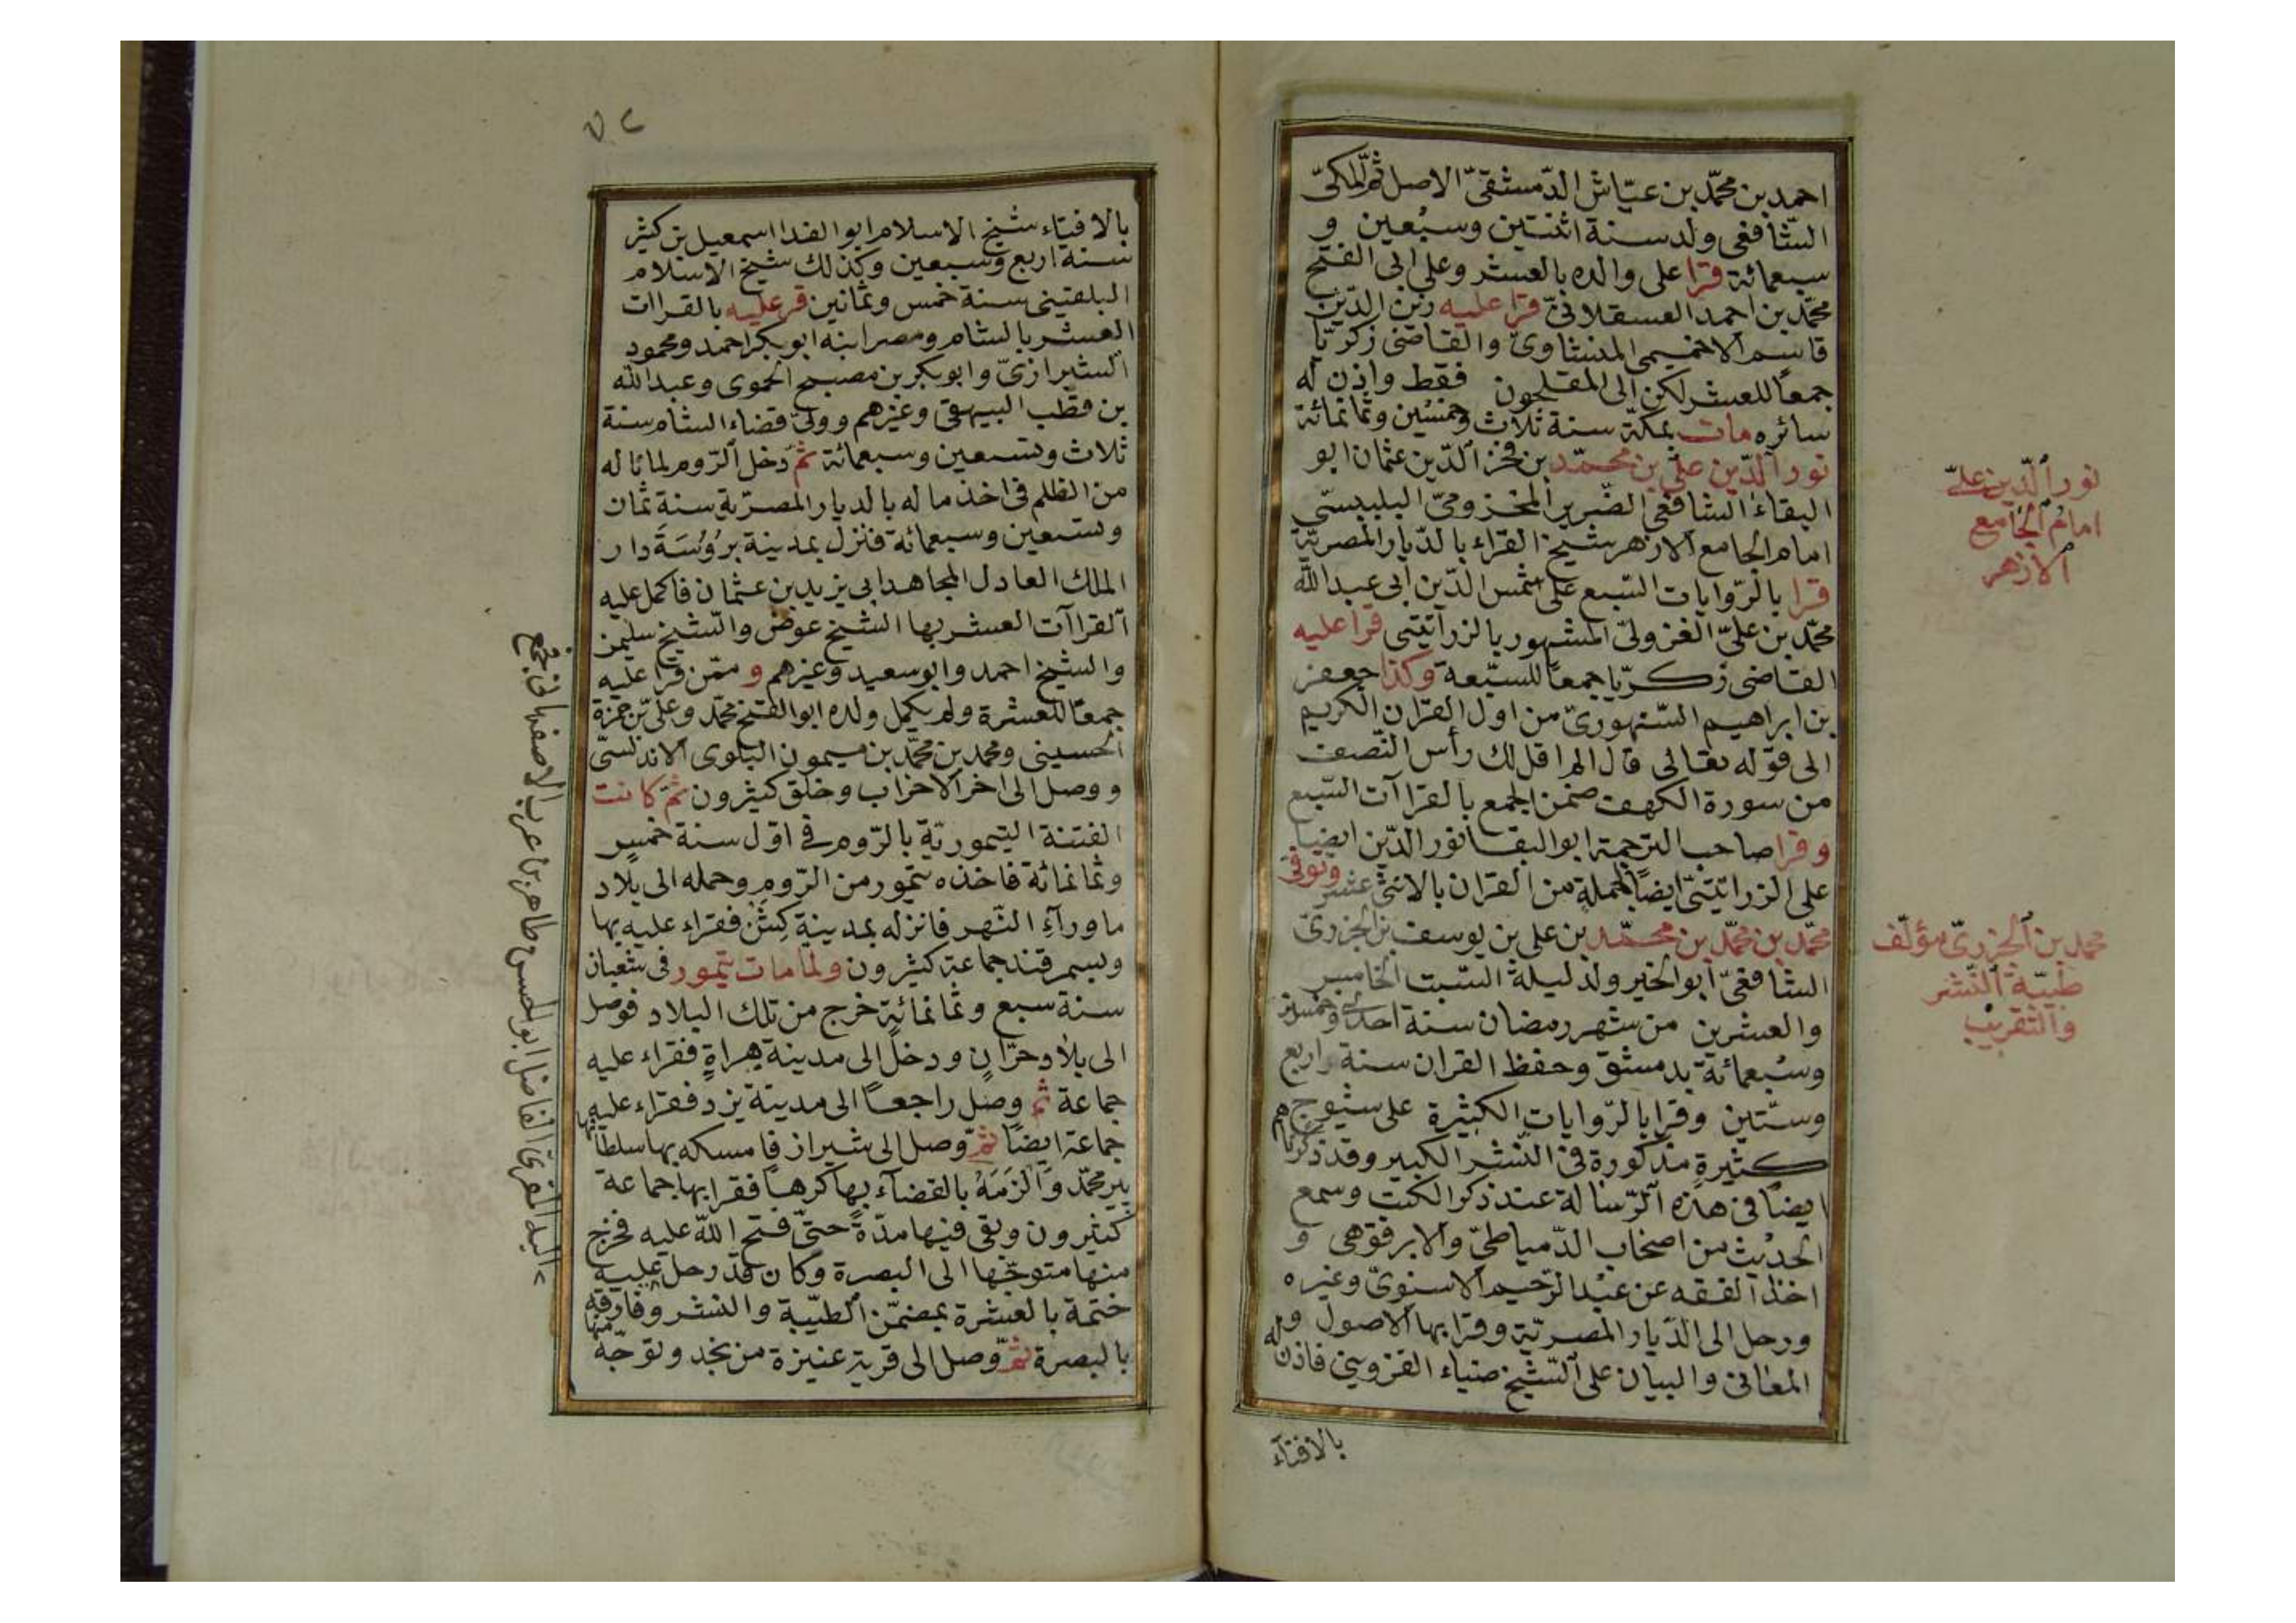 احمد بن محمّد بن عيّاش الدّمشقىّ الاصل ثمّ المكىّ
الشّافعى ولد سنة اثنتين وسبعين و
سبعمائة قرا على والده بالعشر وعلى ابى الفتح
محمّد بن احمد العسقلانىّ قرا عليه زين الدّين
قاسم الاخميمى المنشاوىّ والقاضى زكريّا
جمعًا للعشر لكن الى المفلحون فقط واذن له
سائره مات بمكّة سنة ثلاث وخمسين وثمانمائة
نور الدّين علىّ بن محمّد بن فخر الدّين عثمان ابو
البقاء الشافعى الضّرير المخزومىّ البلبيسىّ
امام الجامع الازهر شيخ القراء بالدّيار المصريّة
قرا بالرّوايات السّبع على شمس الدّين ابى عبدالله
محمّد بن علىّ الغزولىّ المشهور بالزراتيتى قرا عليه
القاضى زكريّا جمعًا للسّبعة وكذا جعفر
بن ابراهيم السّنهورىّ من اول القران الكريم
الى قوله تعالى قال الم اقل لك رأس النّصف
من سورة الكهف ضمن الجمع بالقراآت السّبع
وقرا صاحب الترجمة ابو البقا نور الدّين ايضا
على الزراتيتىّ ايضًا لجملة من القران بالاثنى عشر وتوفى
محمّد بن محمّد بن محمّد بن على بن يوسف بن الجزرىّ
الشافعىّ ابو الخير ولد ليلة السّبت الخامس
والعشرين من شهر رمضان سنة احدى وخمسين
وسبعمائة بدمشق وحفظ القران سنة اربع
وستّين وقرا بالرّوايات الكثيرة على شيوخ
كثيرة مذكورة فى النّشر الكبير وقد ذكرناهم
ايضا فى هذه الرّسالة عند ذكر الكتب وسمع
الحديث من اصحاب الدّمياطىّ والابرقوهى و
اخذ الفقه عن عبد الرّحيم الاسنوىّ وغيره
ورحل الى الدّيار المصريّة وقرا بها الاصول و
المعانى والبيان على الشّيخ ضياء القزوينى فاذن له
بالافتآء
نور الدّين علىّ
امام الجامع
الازهر
محمد بن الجزرىّ مؤلّف
طيّبة النّشر
والتقريب
٧٢
بالافتاء شيخ الاسلام ابو الفدا اسمعيل بن كثير
سنة اربع وسبعين وكذلك شيخ الاسلام
البلقينى سنة خمس وثمانين قرء عليه بالقراات
العشر بالشام ومصر ابنه ابو بكر احمد ومحمود
الشيرازىّ وابو بكر بن مصبح الحموى وعبدالله
بن قطب البيهقى وغيرهم وولىّ قضاء الشام سنة
ثلاث وتسعين وسبعمائة ثمّ دخل الرّوم لما ناله
من الظلم فى اخذ ماله بالديار المصريّة سنة ثمان
وتسعين وسبعمائة فنزل بمدينة برُوُسَة دار
الملك العادل المجاهد ابى يزيد بن عثمان فاكمل عليه
القراآت العشر بها الشيخ عوض والشّيخ سليمن
والشيخ احمد وابو سعيد وغيرهم و ممّن قرا عليه
جمعًا للعشرة ولم يكمل ولده ابو الفتح محمّد وعلىّ بن حمزة
الحسينى ومحمد بن محمّد بن ميمون البلوى الاندلسىّ
ووصل الى اخر الاحزاب وخلق كثيرون ثمّ كانت
الفتنة التيموريّة بالرّوم فى اوّل سنة خمس
وثمانمائة فاخذه تيمور من الرّوم وحمله الى بلاد
ماورآء النّهر فانزله بمدينة كِشْ فقراء عليه بها
وبسمرقند جماعة كثيرون ولما مات تيمور فى شعبان
سنة سبع وثمانمائة خرج من تلك البلاد فوصل
الى بلاد حرّان ودخل الى مدينة هراة فقراء عليه
جماعة ثمّ وصل راجعًا الى مدينة يزد فقراء عليه
جماعة ايضًا ثمّ وصل الى شيراز فامسكه بها سلطانها
پير محمّد وَالْزَمَهُ بالقضآء بها كرهًا فقرا بها جماعة
كثيرون وبقى فيها مدّة حتىّ فتح الله عليه فخرج
منها متوجّها الى البصرة وكان قد رحل عليه
ختمة بالعشرة بمضمّن الطيّبة والنشر وفارقه
بالبصرة ثمّ وصل الى قرية عنيزة من نجد وتوجّه منها
اليه المقرئ الفاضل ابو الحسن طاهر بن عرب الاصفهانى فجمع